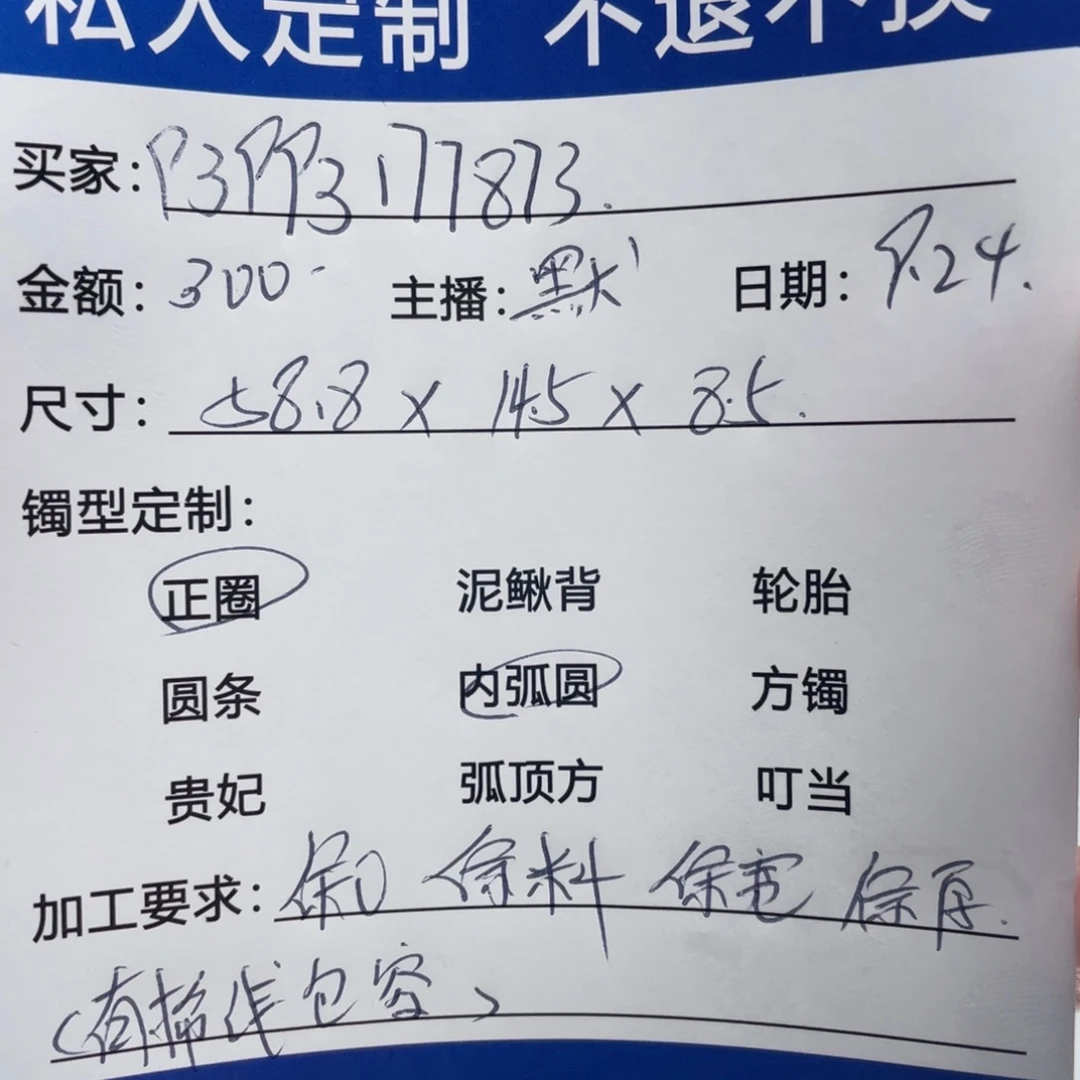 私人定制 不退不换
买家:P3PP3177873.
金额:300 主播:默 日期:9.24.
尺寸:58.8 x 14.5 x 8.5.
镯型定制:
正圈 泥鳅背 轮胎
圆条 内弧圆 方镯
贵妃 弧顶方 叮当
加工要求:保口 保料 保宽 保厚.
(有棉线包容)